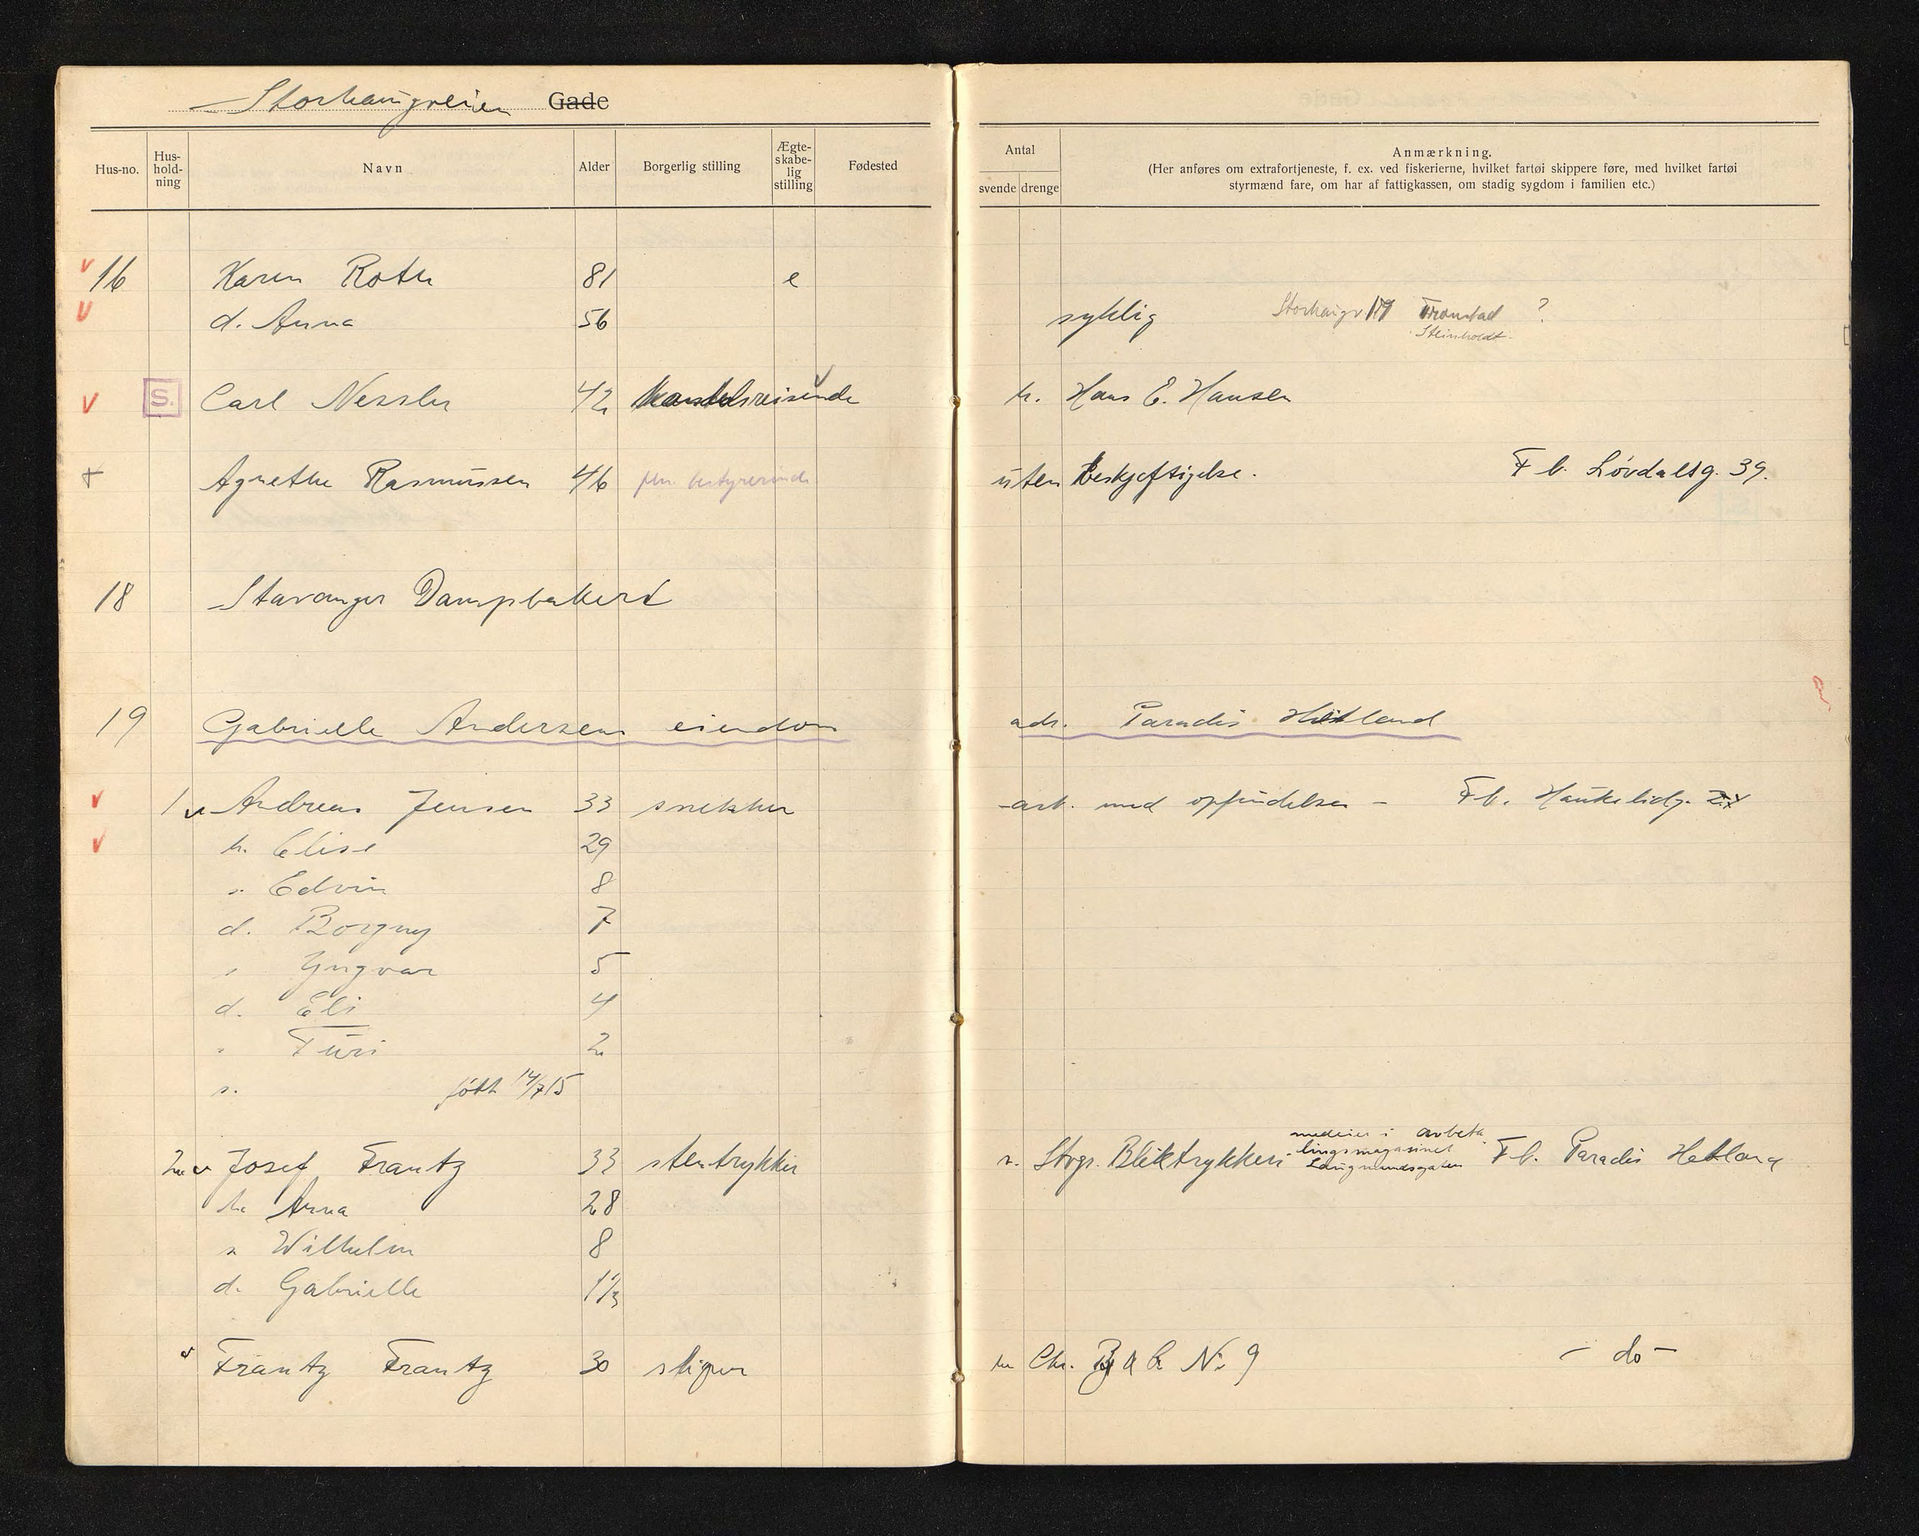 Storhaugveien Gade
Hus-no. Hus-hold-ning Navn Alder Borgerlig stilling Ægte-skabe-lig stilling Fødested
Antal svende drenge
Anmærkning.
(Her anføres om extrafortjeneste, f. ex. ved fiskerierne, hvilket fartøi skippere føre, med hvilket fartøi
styrmænd fare, om har af fattigkassen, om stadig sygdom i familien etc.)
v 16 Karen Roth 81 e
v d. Anna 56 syklig Storhaugv 19 Tronstad ?
Steinholdt.
v S. Carl Nessler 42 Handelsreisende h. Hans E. Hansen
+ Agnethe Rasmussen 46 bestyrerinde uten beskjeftigelse. F b. Løvdalsg. 39.
18 Stavanger Dampbakeri
19 Gabrielle Andersens eiendom adr. Paradis Hetland
v 1 v Andreas Jensen 33 snekker - arb. med opfindelser - F b. Haukelidg.
v h. Elise 29
s. Edvin 8
d. Borgny 7
s Yngvar 5
d. Eli 4
" Turi 2
s. født 14/7 15
2 v Josef Frantz 33 stentrykker s. Stvgr. Bliktrykkeri medeier i avbeta
lingsmagasinet
Laugmandsgaten F b. Paradis Hetland
h. Anna 28
s Wilhelm 8
d. Gabrielle 1 1/3
v Frantz Frantz 30 sliper h Chr. No 9 - do -